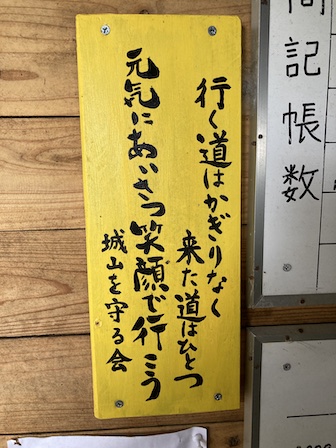 行く道はかぎりなく
来た道はひとつ
元気にあいさつ笑顔で行こう
城山を守る会
記帳数